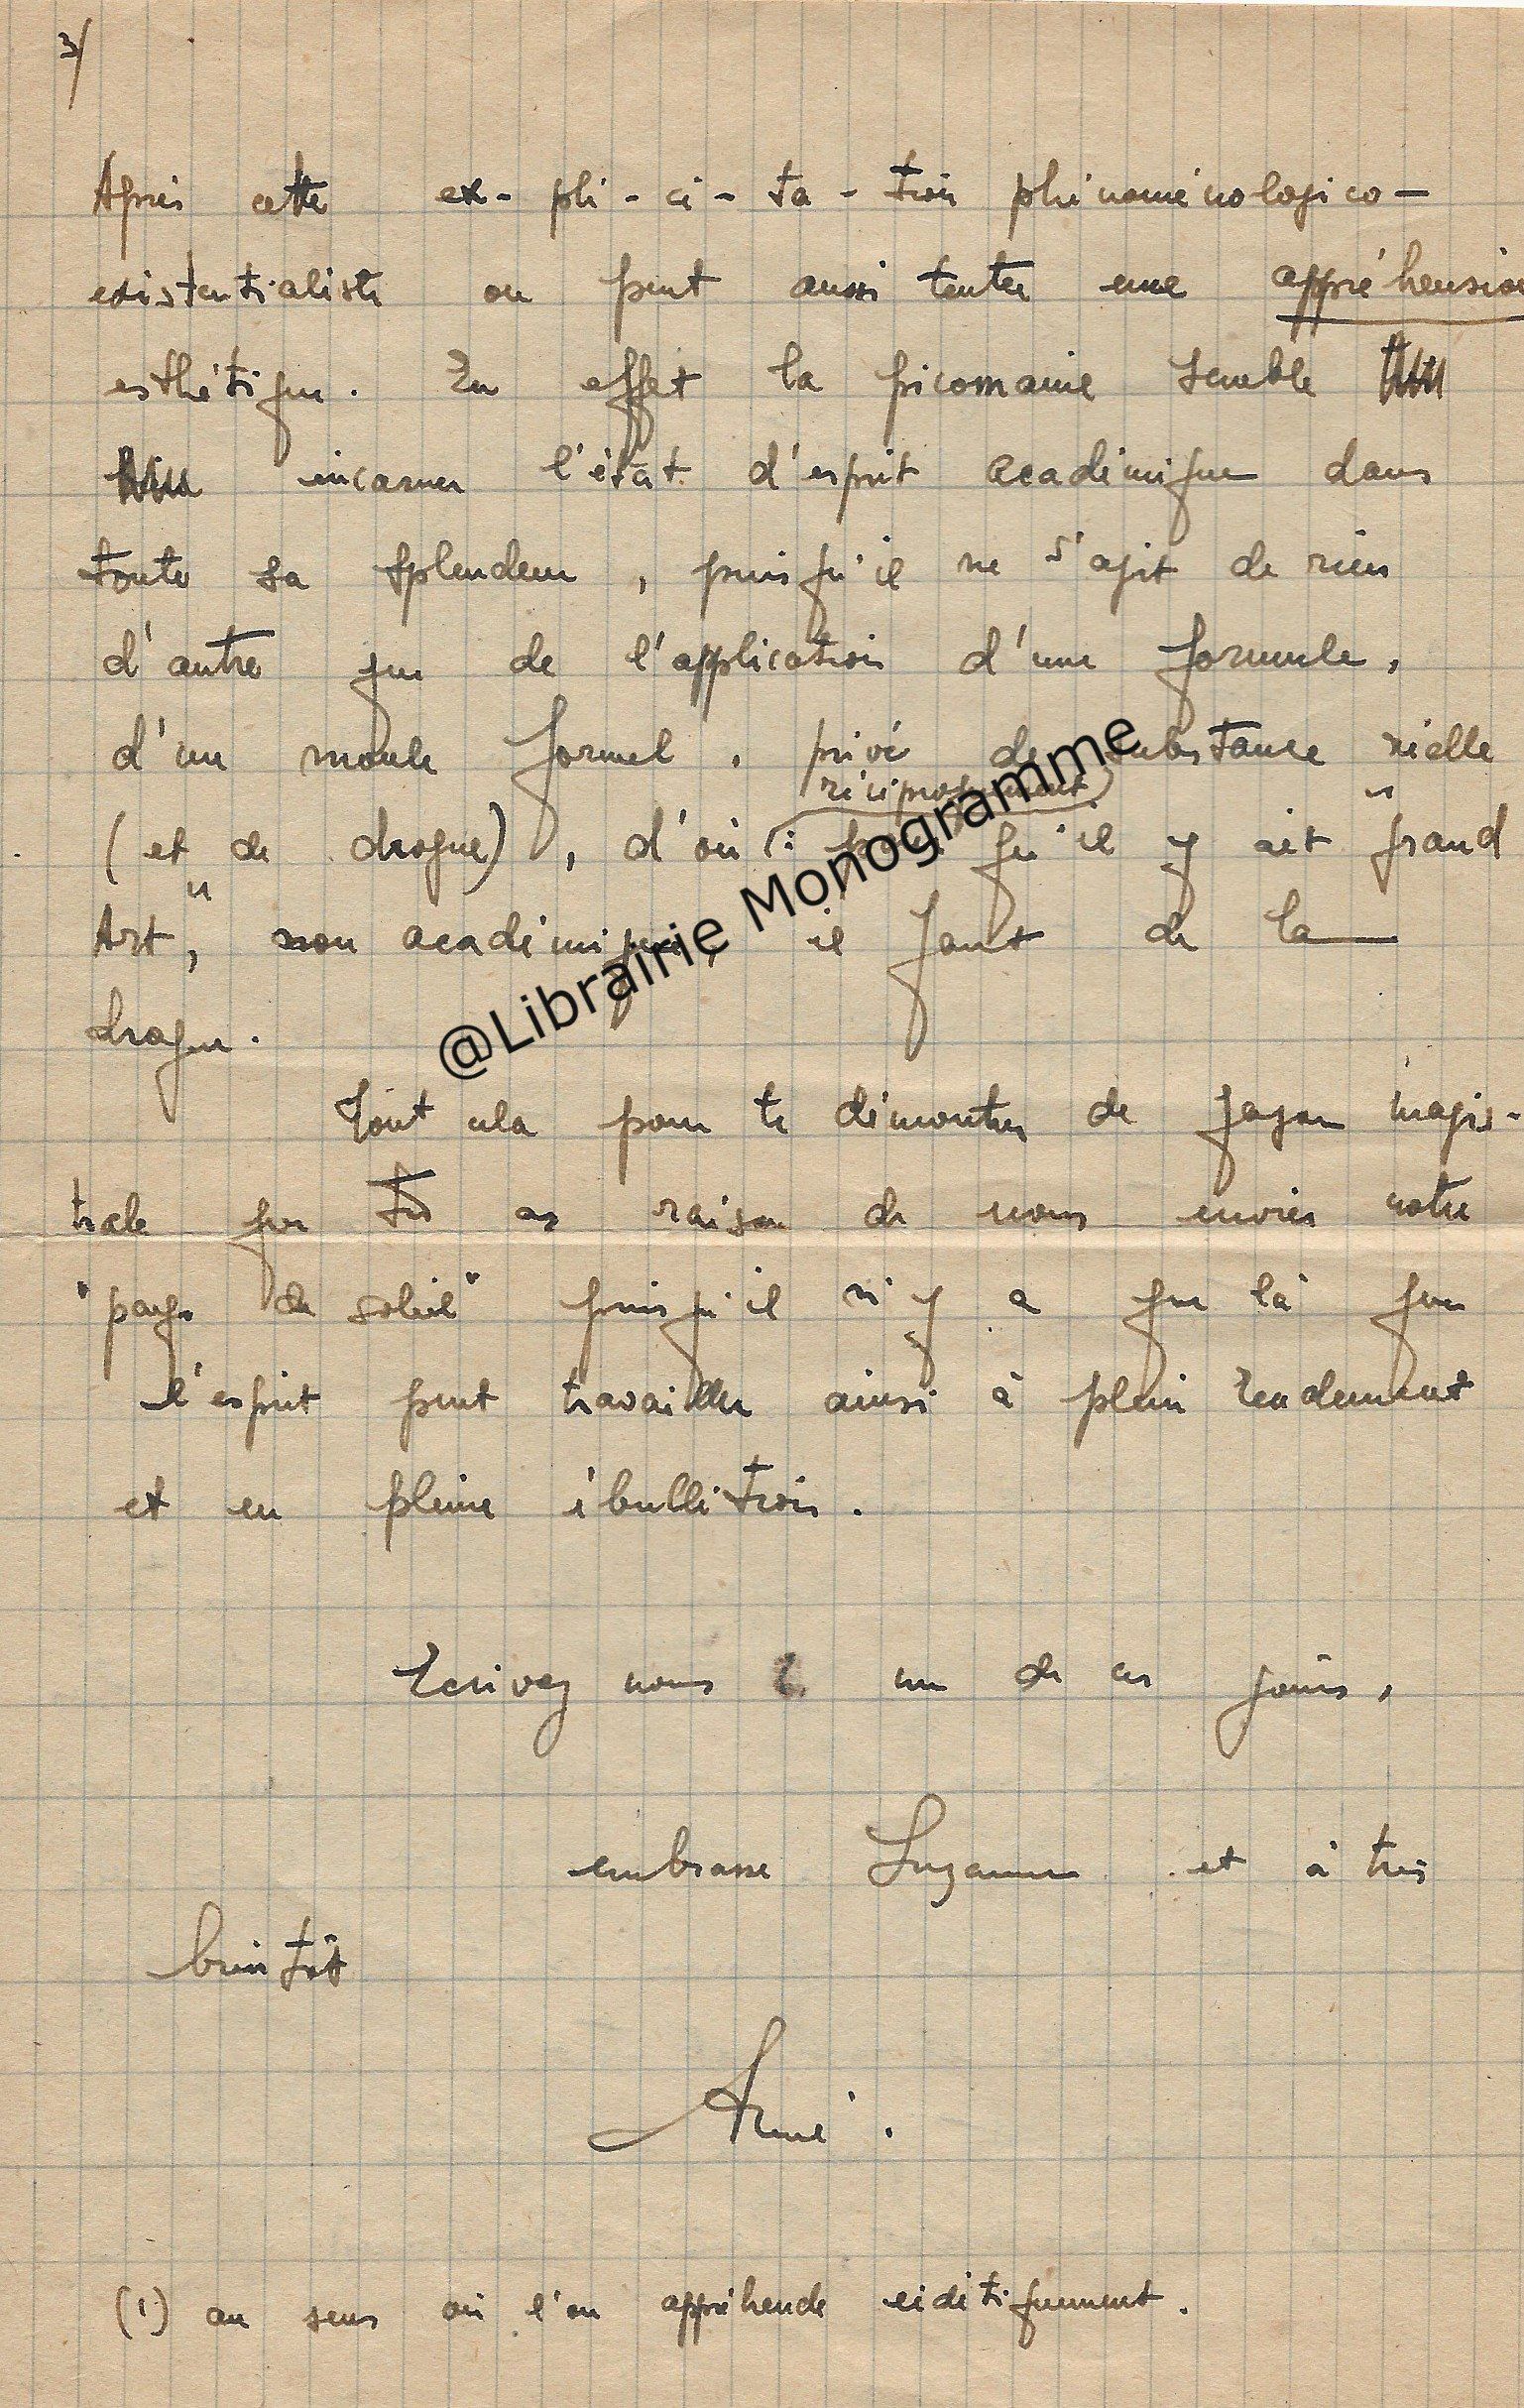 3/
Après cette ex-pli-ci-ta-tion phénoménologico-
existentialiste on peut aussi tenter une appréhension
esthétique. En effet la picomanie semble
incarner l'état d'esprit académique dans
toute sa splendeur, puisqu'il ne s'agit de rien
d'autre que de l'application d'une formule,
d'un moule formel, privé de substance réelle
réciproquement
(et de drogue), d'où : pour qu'il y ait "grand
Art", non académique, il faut de la
drogue.
Tout cela pour te démontrer de façon magis-
trale que tu as raison de nous envier notre
"pays de soleil" puisqu'il n'y a que là que
l'esprit peut travailler ainsi à plein rendement
et en pleine ébullition.
Ecrivez nous un de ces jours,
embrasse Suzanne et à très
bientôt
(1) au sens où l'on appréhende eidétiquement.
@Librairie Monogramme